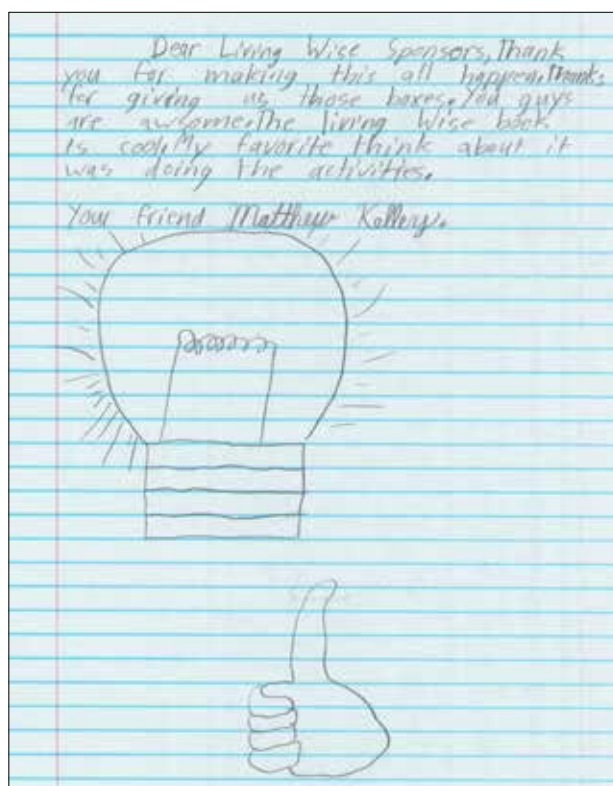 Dear Living Wise Sponsors, Thank
you for making this all happen. Thanks
for giving us those boxes. You guys
are awsome. The living Wise book
is cool. My favorite think about it
was doing the activities.
Your friend Matthew